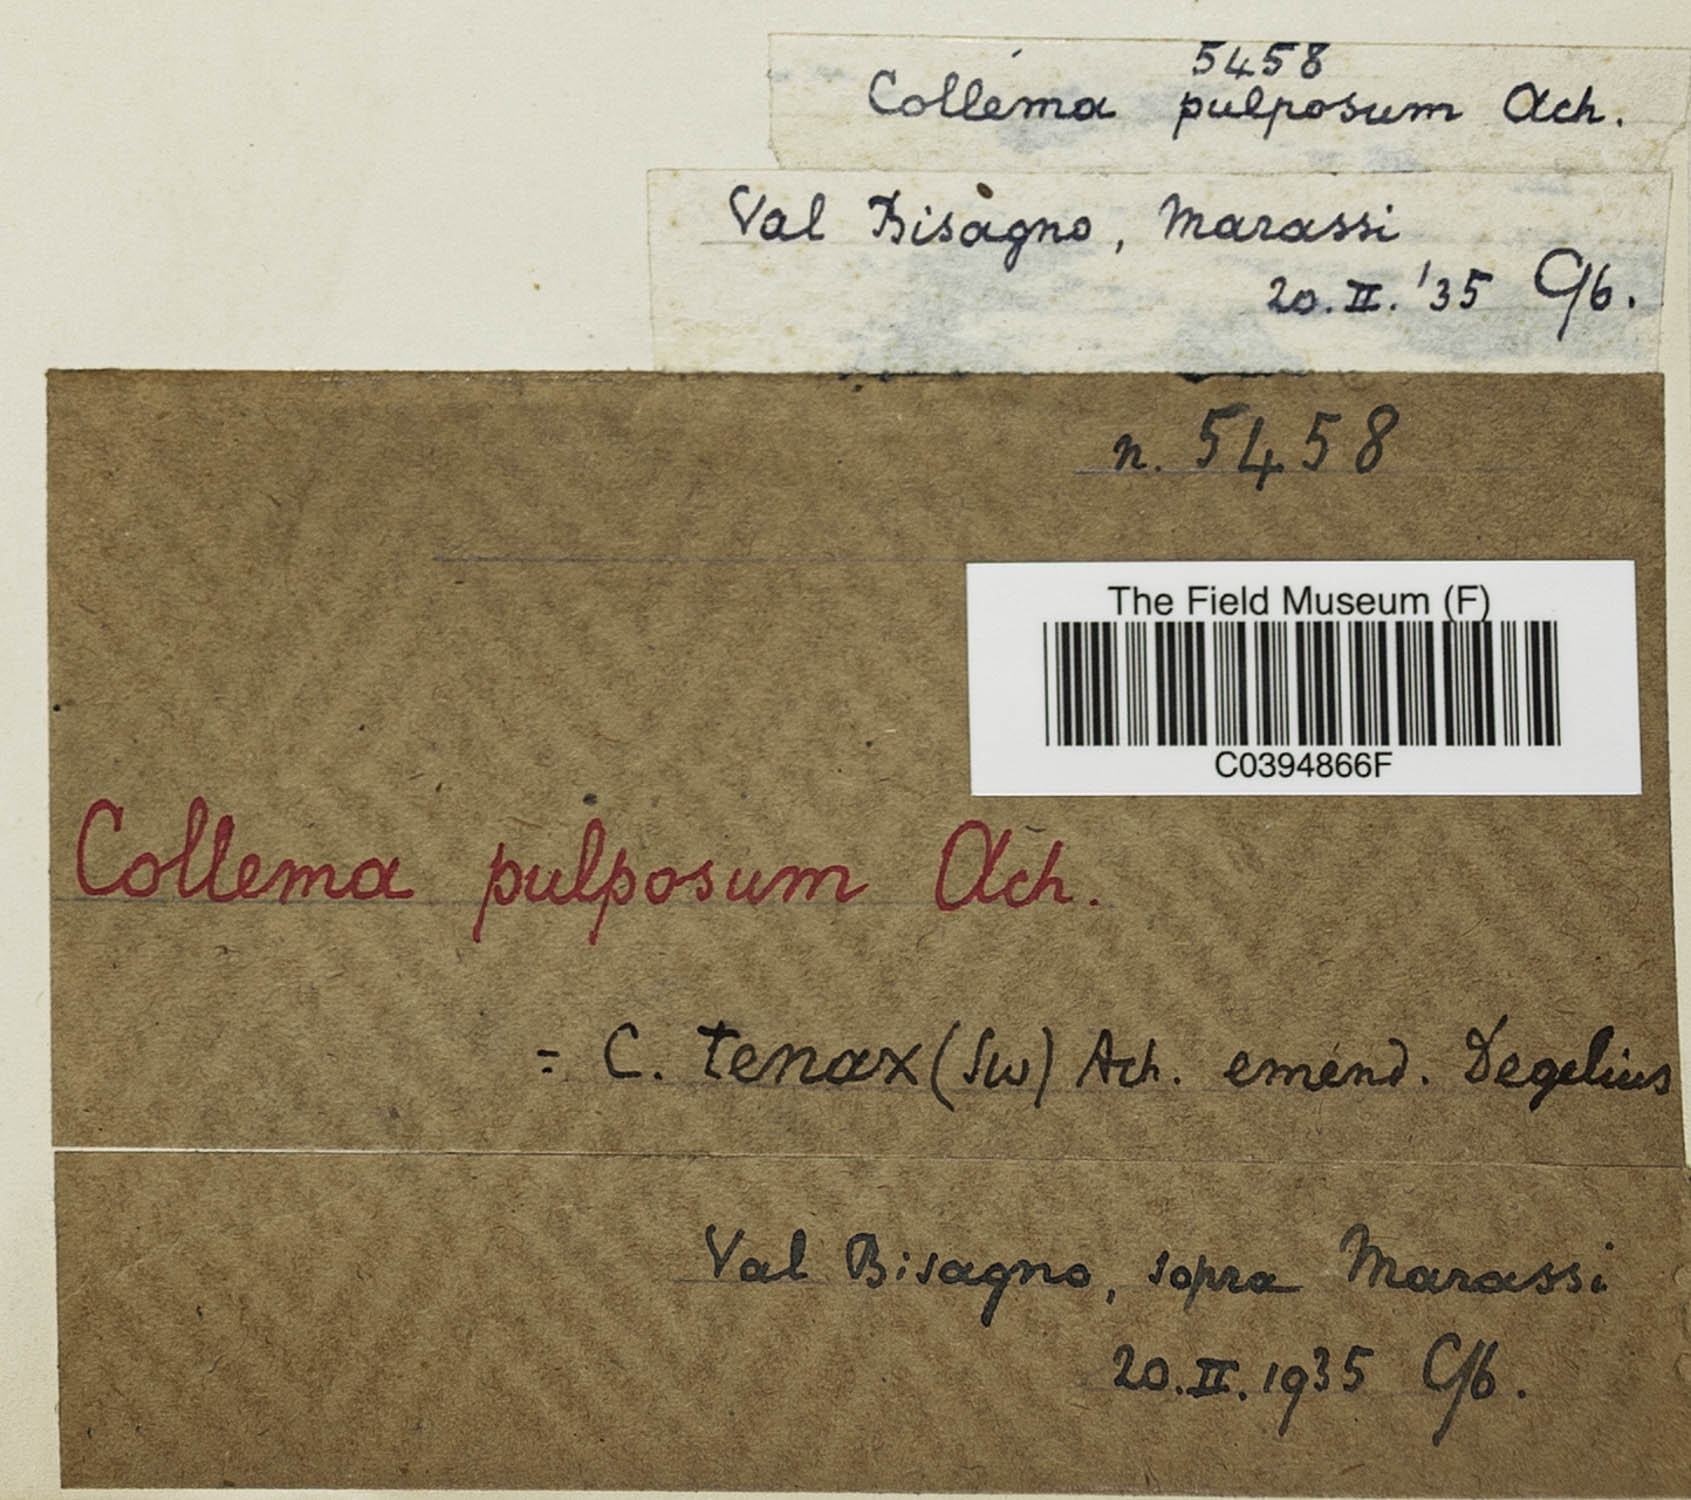 5458
Collema pulposum Ach.
Val Bisagno, Marassi
20.II.'35 C/b.
n. 5458
The Field Museum (F)
C0394866F
Collema pulposum Ach.
= C. tenax (Sw) Ach. emend. Degelius
Val Bisagno, sopra Marassi
20.II.1935 C/b.